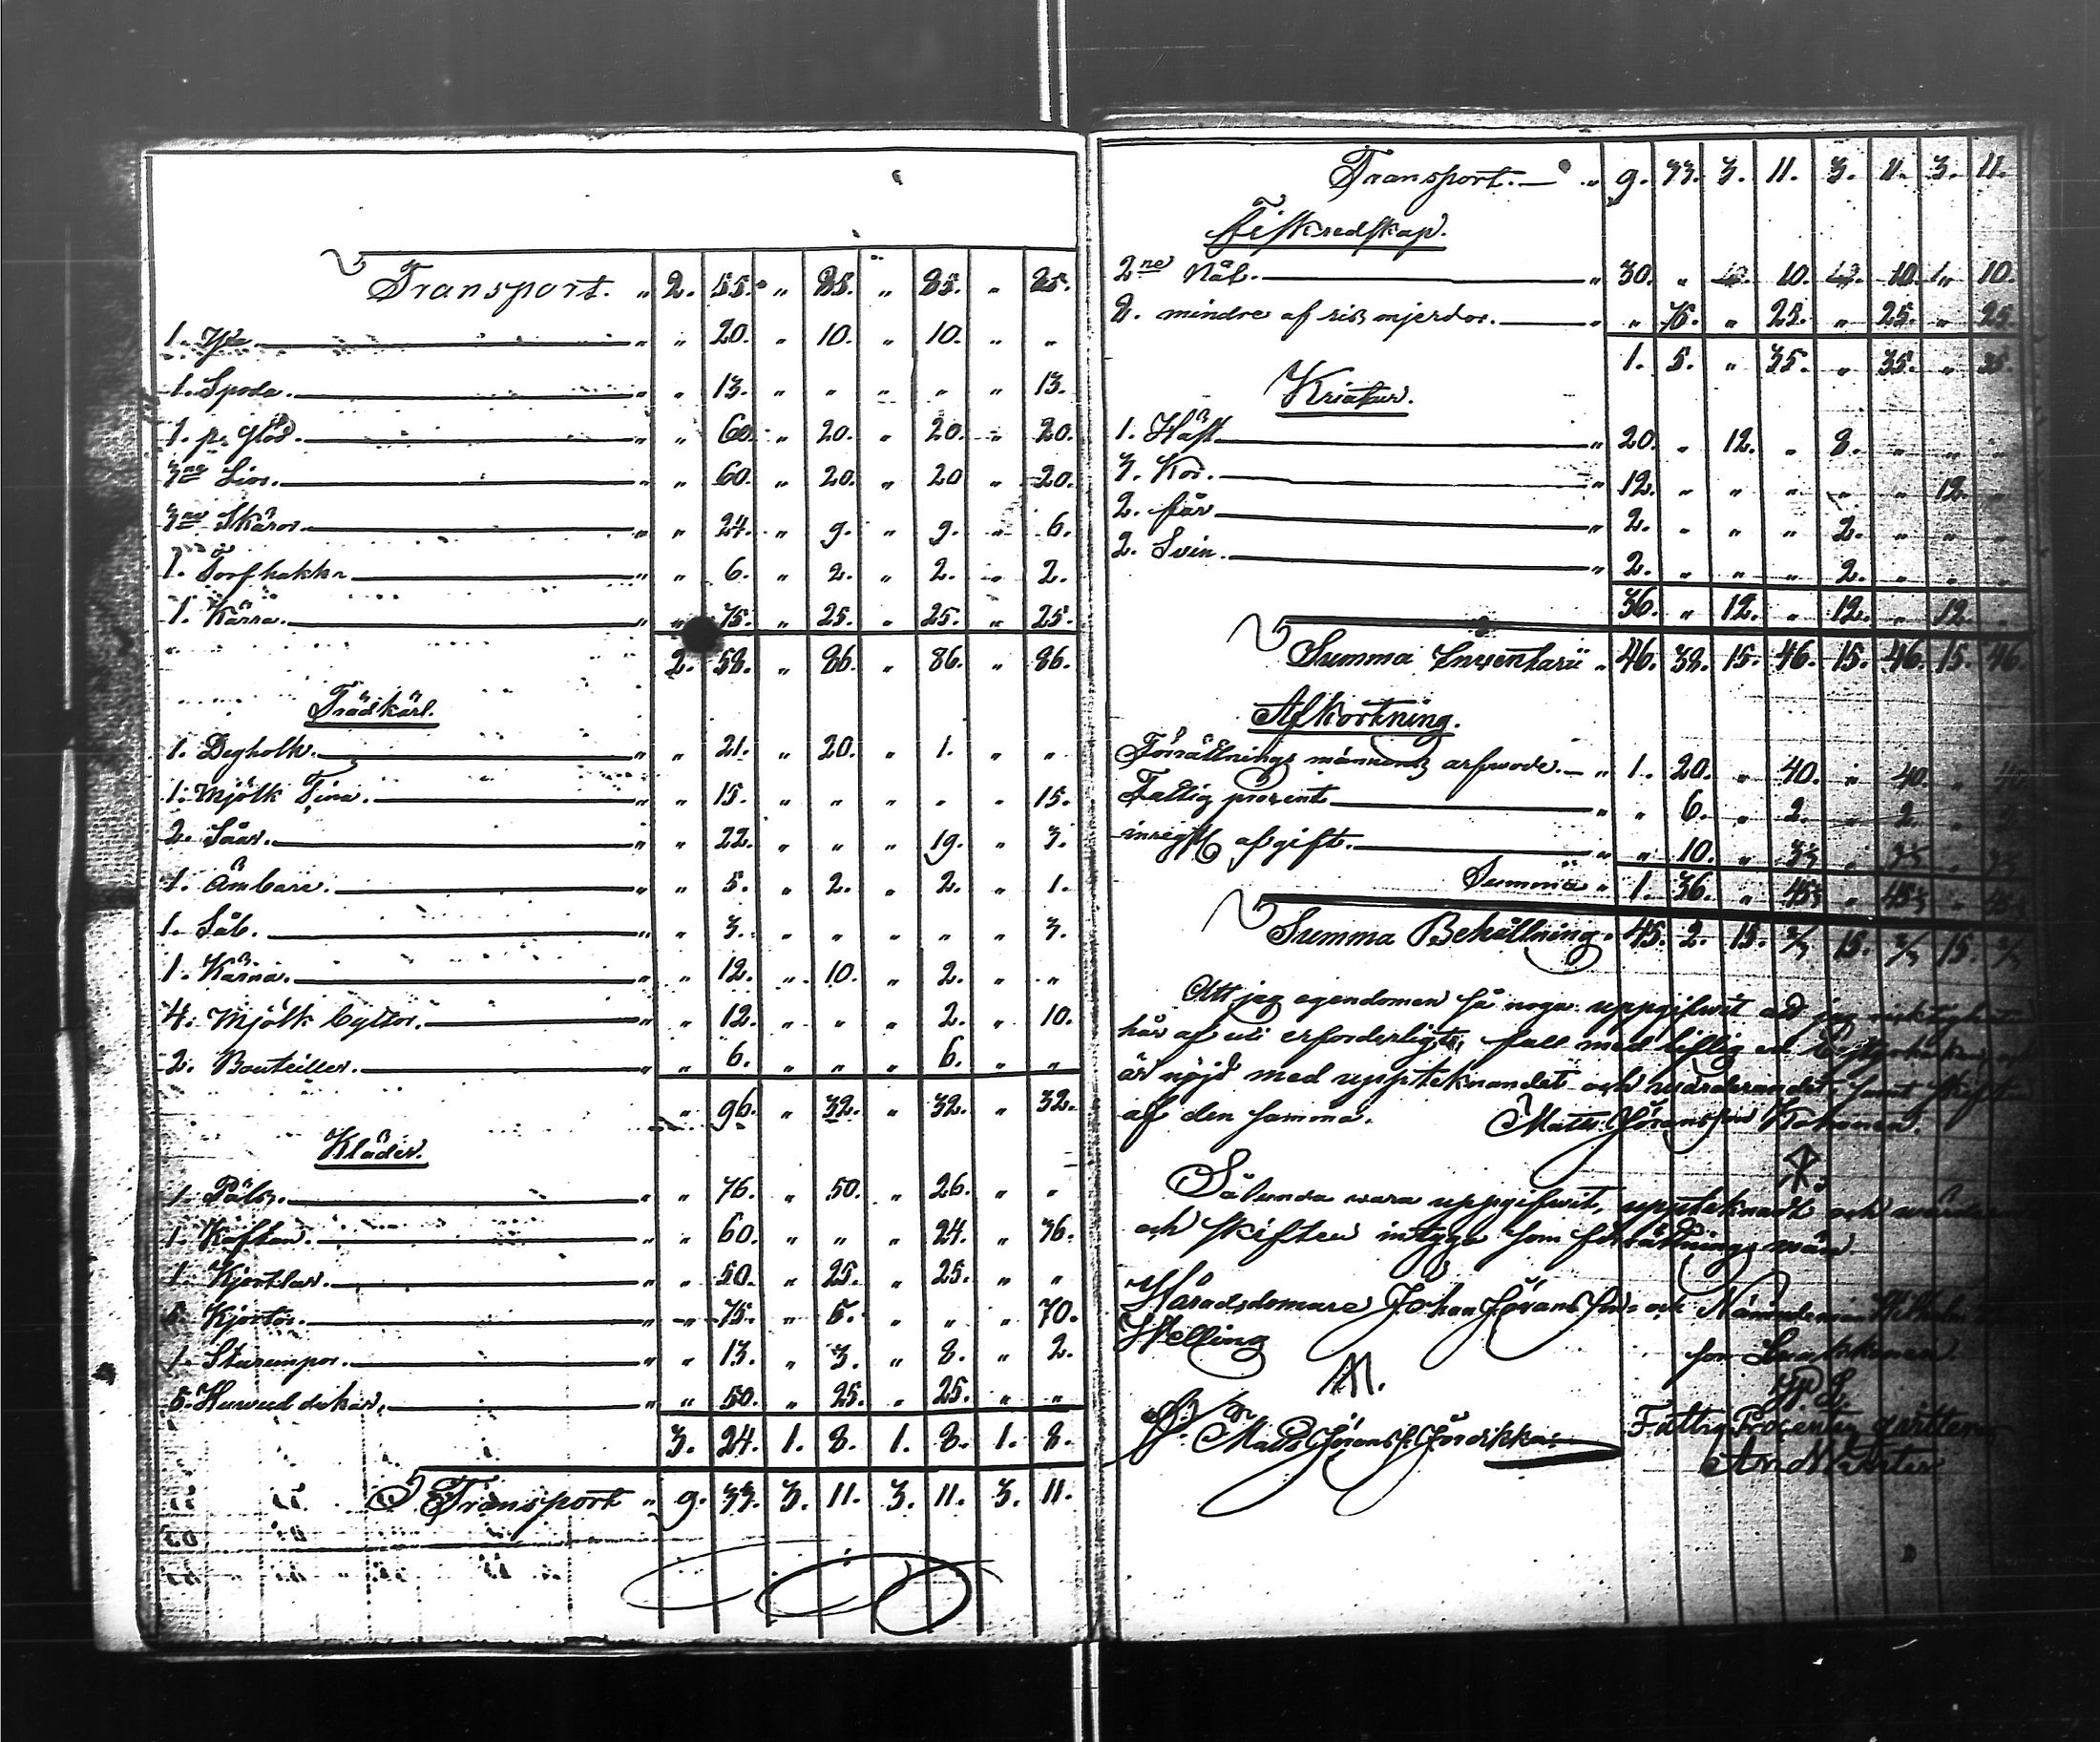 Transport. " 2. 55. " 85. " 85. " 85.
1. Yxa. " " 20. " 10. " 10. " "
1. Spada. " " 13. " " " " " 13.
1. pr " " 60. " 20. " 20. " 20.
3ne Liar. " " 60. " 20. " 20 " 20.
3ne Skäror. " " 24. " 9. " 9. " 6.
1. Torfhakka " " 6. " 2. " 2. " 2.
1. Kärra. " " 75. " 25. " 25. " 25.
2. 58. " 86. " 86. " 86.
Trädkärl.
1. Degholk. " " 21. " 20. " 1. " "
1. Mjölk Tina. " " 15. " " " " " 15.
2. Såar. " " 22. " " " 19. " 3.
1. Ämbare. " " 5. " 2. " 2. " 1.
1. Såll. " " 3. " " " " " 3.
1. Kärna. " " 12. " 10. " 2. " "
4. Mjölk byttor. " " 12. " " " 2. " 10.
2. Bouteiller. " " 6. " " " 6. " "
" 96. " 32. " 32. " 32.
Kläder.
1. Päls. " " 76. " 50. " 26. " "
1. Kaftan. " " 60. " " " 24. " 36.
1. Kjortlar. " " 50. " 25. " 25. " "
Kjortor. " " 75. " 5. " " " 70.
1. Strumpor. " " 13. " 3. " 8. " 2.
5. Huvuddukar. " " 50. " 25. " 25. " "
3. 24. 1. 8. 1. 8. 1. 8.
Transport " 9. 33. 3. 11. 3. 11. 3. 11.
Transport. " 9. 33. 3. 11. 3. 11. 3. 11.
Fiskredskap.
2ne Nät. " 30. " 10. 10. 10.
2. mindre af ris mjerdor. " " 75. " 25. " 25. " 25.
1. 5. " 35. " 35. " 35.
Kriatur.
1. Häst " 20. " 12. " 8. " " "
3. Kor. " 12. " " " " " 12. "
2. får " 2. " " " 2. " " "
2. Svin. " 2. " " " 2. " " "
36. " 12. " 12. " 12 "
Summa Inventarii " 46. 38. 15. 46. 15. 46. 15. 46
Afkortning.
Förrättnings männens arfwode. " 1. 20. " 40. " 40. "
Fattig procent " " 6. " 2. " 2. "
afgift. " " 10. " 3⅓ " 3⅓ "
Summa " 1. 36. " 45⅓ " 45⅓ "
Summa Behållning. 45. 2. 15. ⅔ 15. ⅔ 15. ⅔
Att jag egendomen så noga uppgifwit att jag
här af uti erforderligt fall med liflig ed
är nöjd med upptecknandet och värderandet samt
af den samma. Matts Göransson
Sålunda wara uppgifwit, upptecknadt och
och skiften intyga som förrättnings män
Häradsdomare Johan Göransson och Nämndeman
Helling son
Matts Göransson
Fattig Procenten